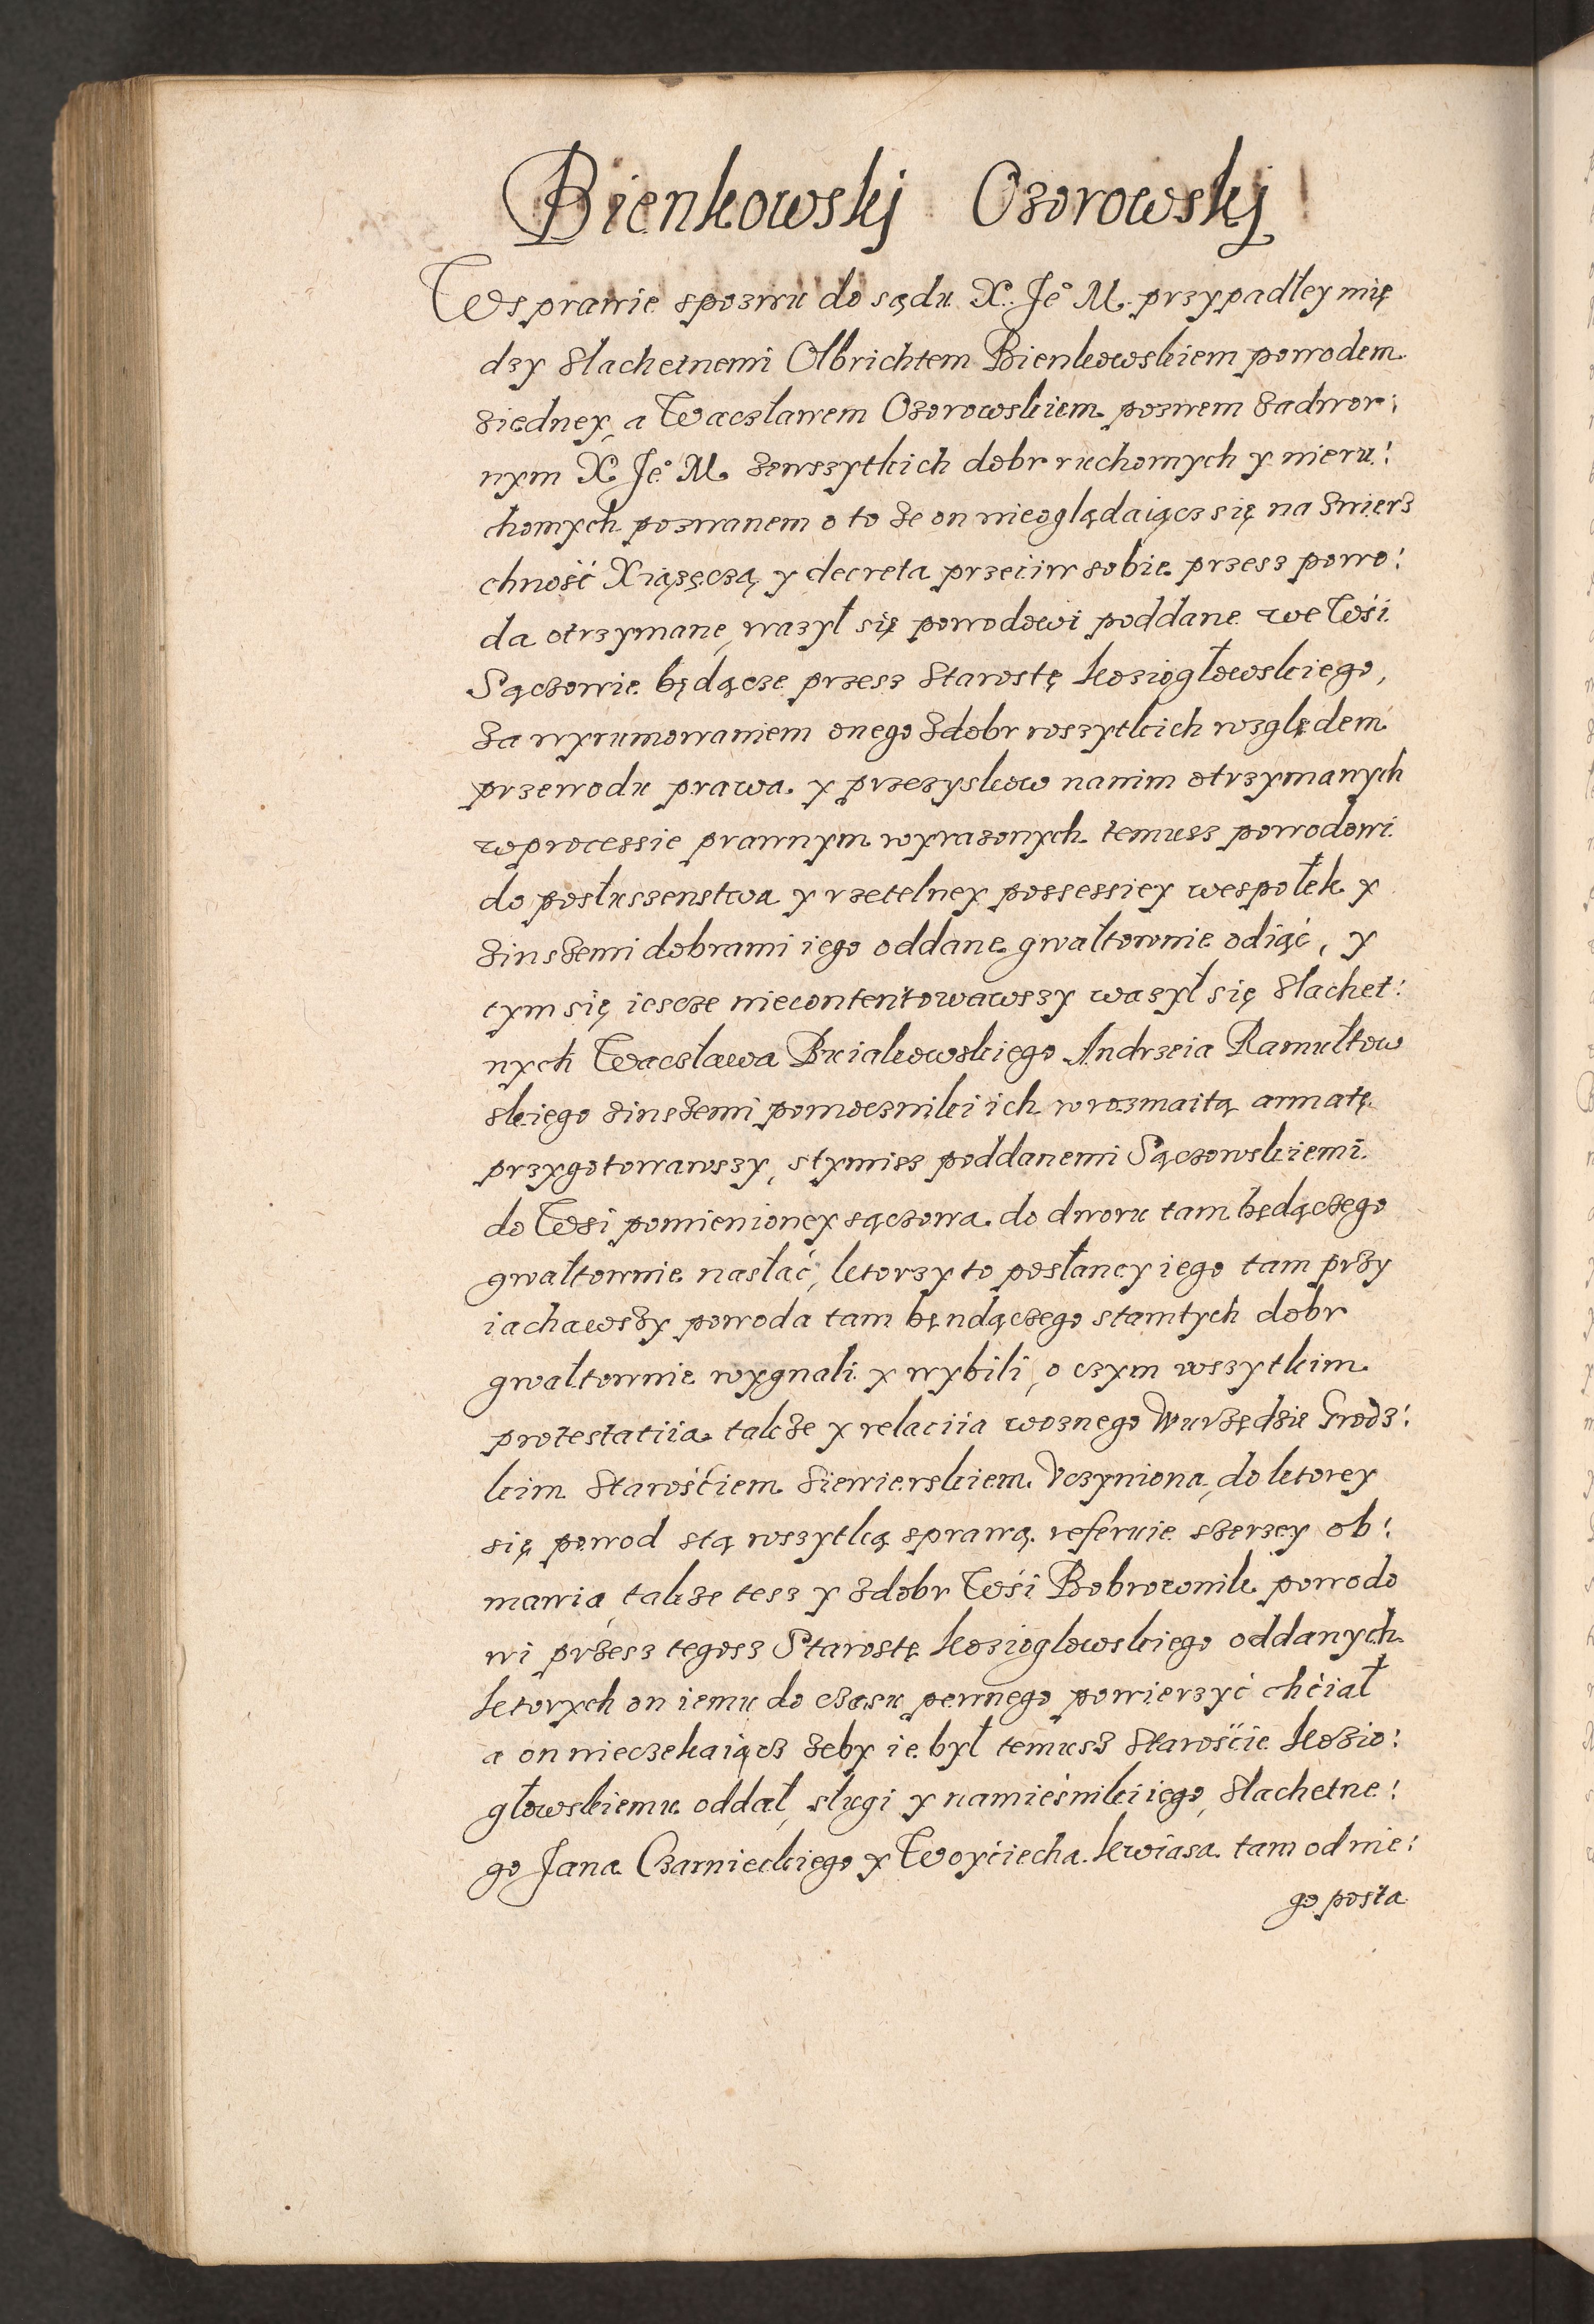 Bienkowskj Ozorowskj
W sprawie spozwu do sądu X. Je° M. przypadłey mię
dzy slachetnemi Olbrichtem Bienkowskiem powodem
ziedney, a Waczlawem Ozorowskiem pozwem zadwor:
nym X. Je° M. zewszytkich dobr ruchomych y nieru:
chomych pozwanem o to ze on nieoglądaiącz się na zwierz
chność Xiązęczą y decreta przeciw sobie przesz powo:
da otrzymane, wazył się powodowi poddane we Wśi
Sączowie będącze przesz Starostę Koziogłowskiego,
za wyrumowaniem onego zdobr wszytkich względem
przewodu prawa y przezyskow nanim otrzymanych
w processie prawnym wyrazonych temusz powodowi
do posłuszenstwa y rzetelney possessiey wespołek y
zinszemi dobrami iego oddane gwałtownie odiąć, y
tym się iescze niecontentowawszy wazył się slachet:
nych Wacsława Buiakowskiego Andrzeia Ramułtow
skiego zinszemi pomocznikiich wrozmaitą armatę
przygotowawszy, stymisz poddanemi Sączowskiemi
do Wsi pomienioney sączowa do dworu tam będączego
gwałtownie nasłać, ktorzy to posłancy iego tam przy
iachawszy powoda tam będączego stamtych dobr
gwałtownie wygnali y wybili, o czym wszytkim
protestatiia takze y relaciia woznego Wurzędzie Grodz:
kim Starośćiem Siewierskiem Vczyniona, do ktorey
się powod stą wszytką sprawą referuie szerzey ob:
mawia, takze tesz y zdobr Wśi Bobrownik powodo
wi przesz tegosz Starostę Kozioglowskiego oddanych
ktorych on iemu do czasu pewnego powierzyć chćiał
a on nieczekaiącz zeby ie był temusz Starośćie Kozio:
głowskiemu oddał, sługi y namieśnikiiego, slachetne:
go Jana Czarnieckiego y Woyćiecha Kwiasa tam od nie:
go posła